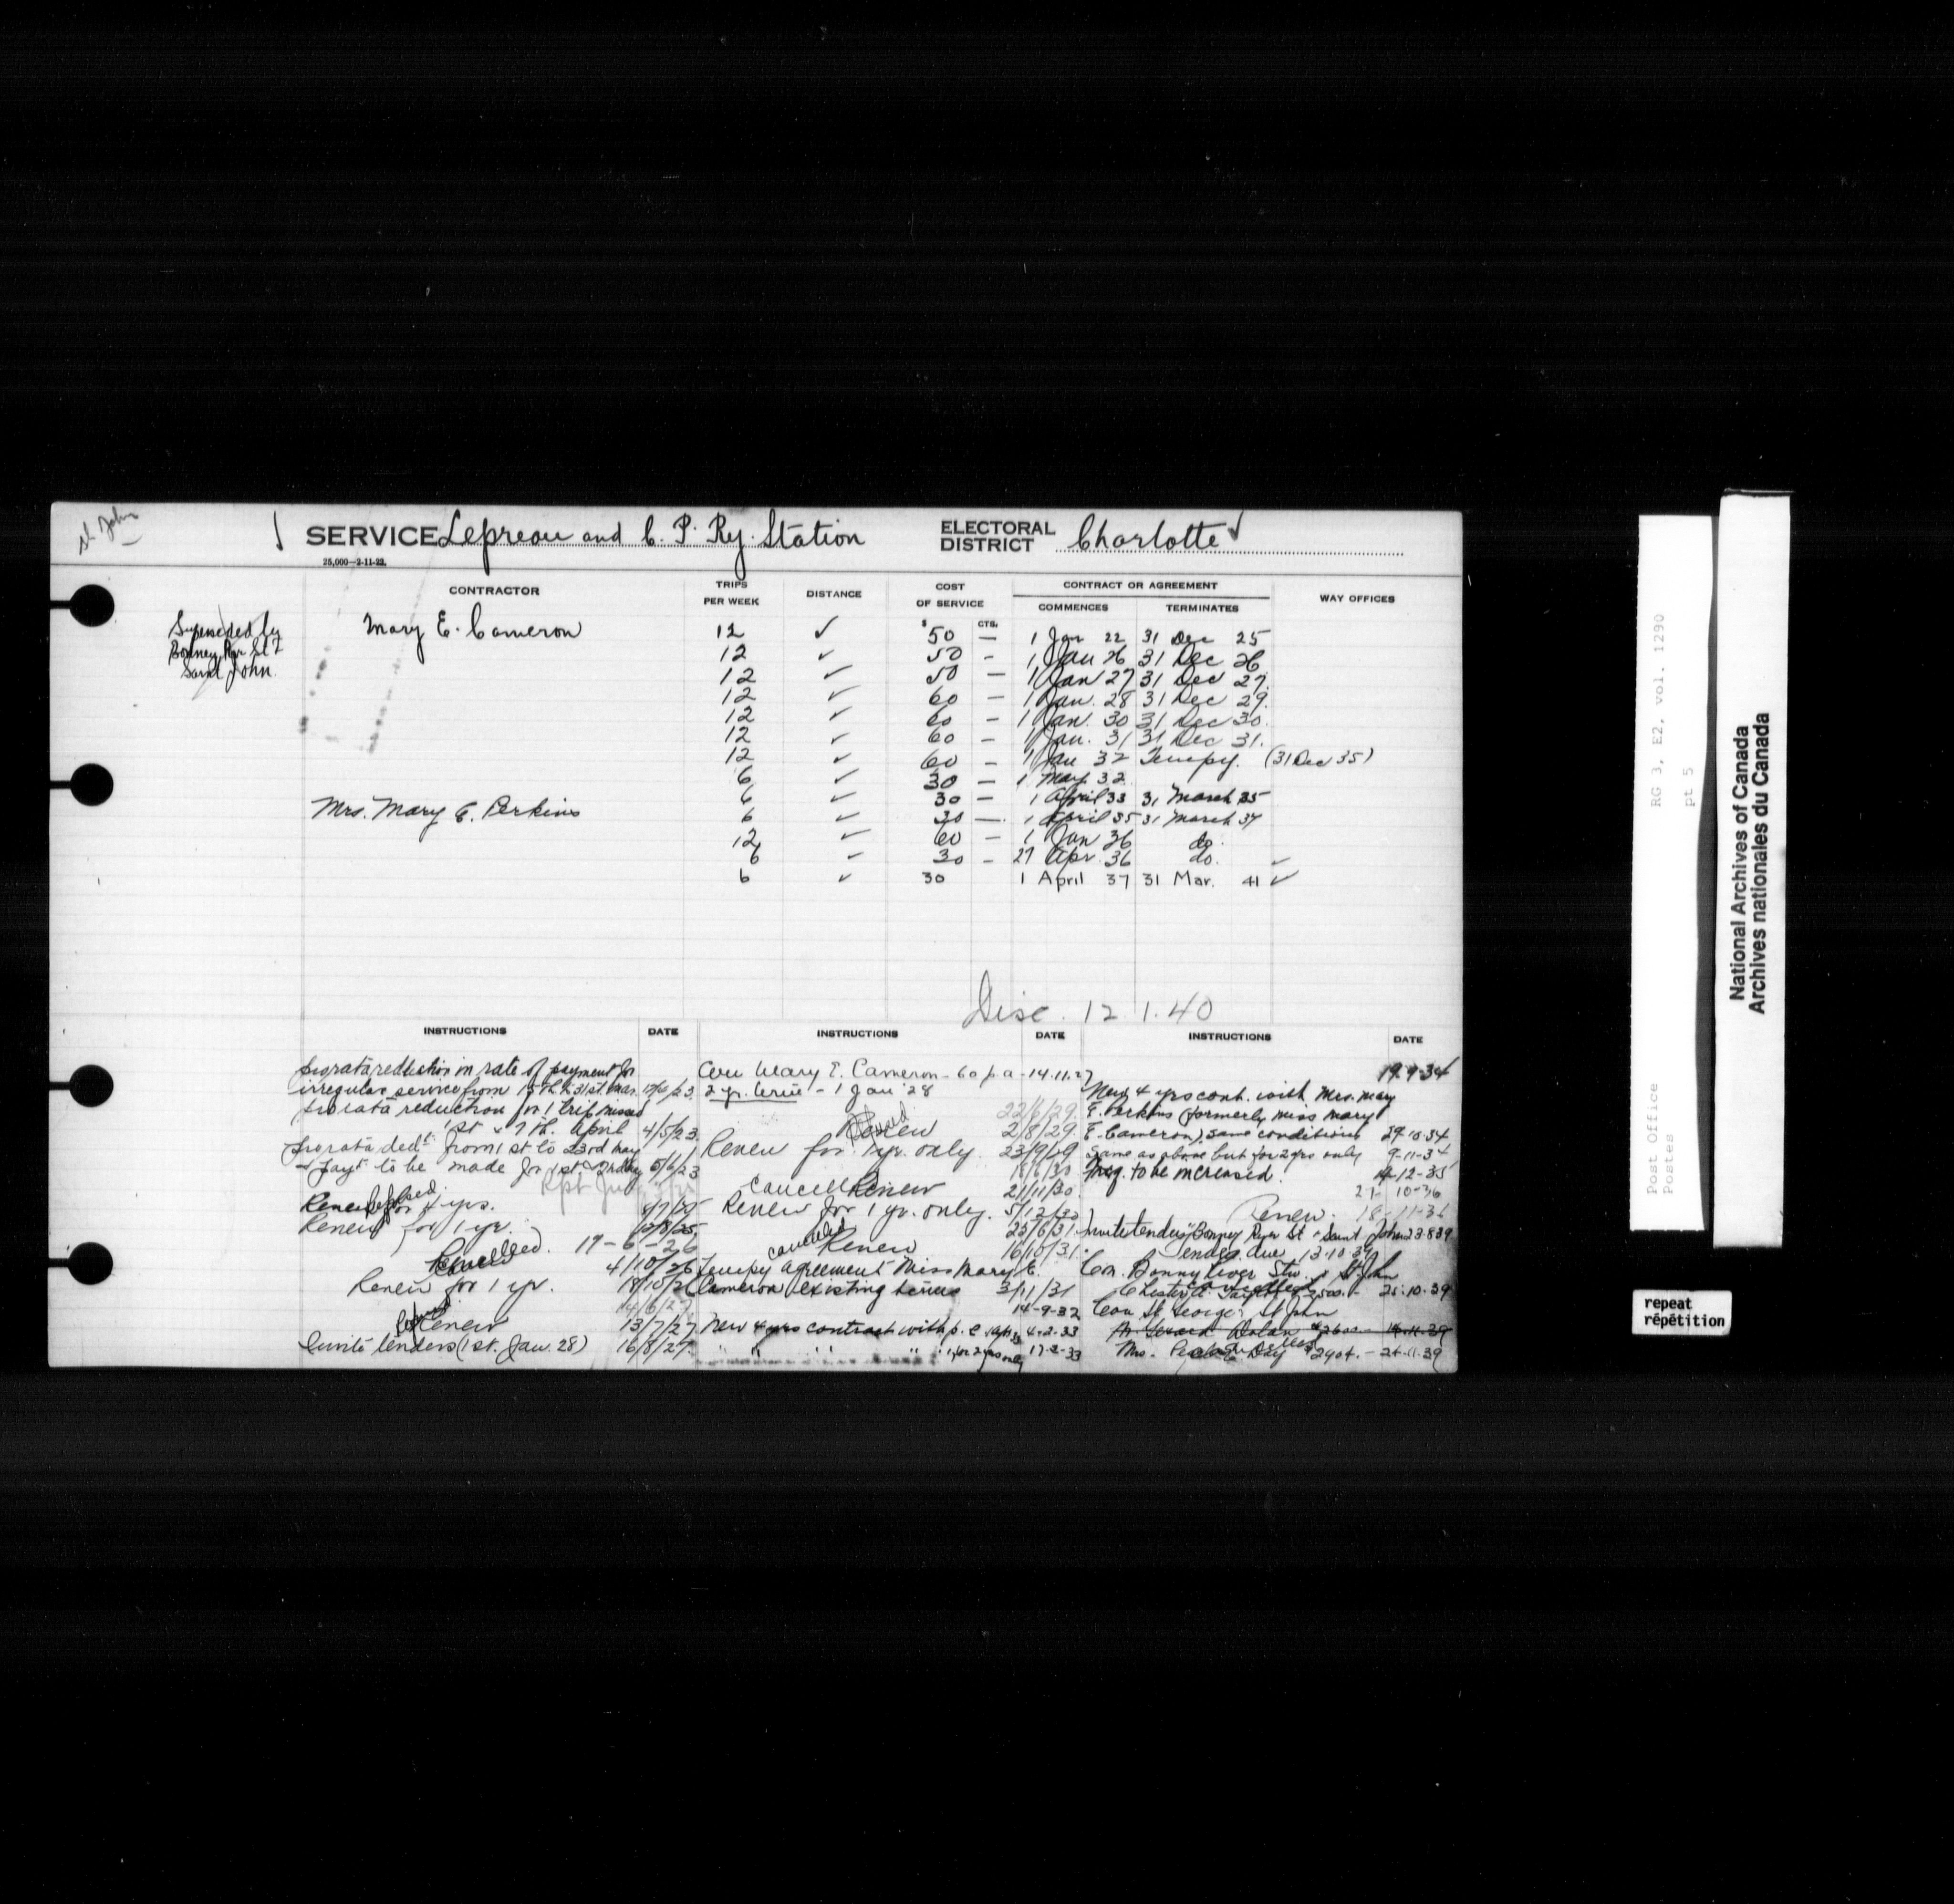 St. John
SERVICE Lepreau and C. P. Ry. Station
ELECTORAL DISTRICT Charlotte
25,000—2-11-22.
CONTRACTOR
TRIPS PER WEEK
DISTANCE
COST OF SERVICE
CONTRACT OR AGREEMENT
COMMENCES
TERMINATES
WAY OFFICES
$ CTS.
Superseded by
Bonney Rvr St &
Saint John.
Mary E. Cameron 12 ✓ 50 — 1 Jan 22 31 Dec 25
12 ✓ 50 - 1 Jan 26 31 Dec 26
12 ✓ 50 — 1 Jan 27 31 Dec 27.
12 ✓ 60 — 1 Jan. 28 31 Dec 29.
12 ✓ 60 — 1 Jan. 30 31 Dec 30.
12 ✓ 60 — 1 Jan. 31 31 Dec 31.
12 ✓ 60 - 1 Jan 32 Tempy. (31 Dec 35)
6 ✓ 30 — 1 May. 32
6 ✓ 30 — 1 April 33 31 March 35
Mrs. Mary E. Perkins 6 ✓ 30 — 1 April 35 31 March 37
12 ✓ 60 — 1 Jan 36 do.
6 ✓ 30 - 27 Apr. 36 do. ✓
6 ✓ 30 1 April 37 31 Mar. 41 ✓
Disc. 12 1.40
INSTRUCTIONS DATE
prorata reduction in rate of payment for
irregular service from 15th to 31st Mar.
prorata reduction for 1 trip missed
1st & 7th. April 4/5/23.
prorata dedt. from 1st to 23rd may
& payt to be made for 1st & 2nd May 5/6/23
Renew for 4 yrs. Refused.
Renew for 1 yr. 12/8/25.
Cancelled. 17-6-26
Renew 4/10/26
Renew for 1 yr. 18/10/26
14/6/27
Renew 13/7/27
Invite tenders (1st. Jan. 28) 16/8/27.
INSTRUCTIONS DATE
Con Mary E. Cameron - 60 p.a - 14.11.27
2 yr. term - 1 Jan '28
22/6/29.
Renew 2/8/29.
Renew for 1 yr. only. 23/9/29
Cancelled Renew 21/11/30.
Renew for 1 yr. only. 5/12/30
25/6/31.
cancelled Renew 16/10/31.
Tempy agreement Miss Mary E.
Cameron existing terms 3/11/31
14-9-32
New 4 yrs contract with p. c. 4-2-33
" " " " " for 2 yrs only 17-2-33
INSTRUCTIONS DATE
19-9-34
New 4 yrs cont. with Mrs. Mary
E. Perkins (formerly Miss Mary
E. Cameron), same conditions 29-10-34
Same as above but for 2 yrs only 9-11-34
Freq. to be increased. 14-12-35
27-10-36
Renew. 18-11-36
Invite tenders "Bonney River St & Saint John 23.8.39
Tenders due 13-10-39
Con. Bonny River Stn. & St John
cancelled 25.10.39
Con St George & St John
A. Gerard Dolan $2600 14-11-39
Mrs. Day $2404. - 24-11-39
RG 3, E2, vol. 1290
pt 5
Post Office
Postes
National Archives of Canada
Archives nationales du Canada
repeat
répétition